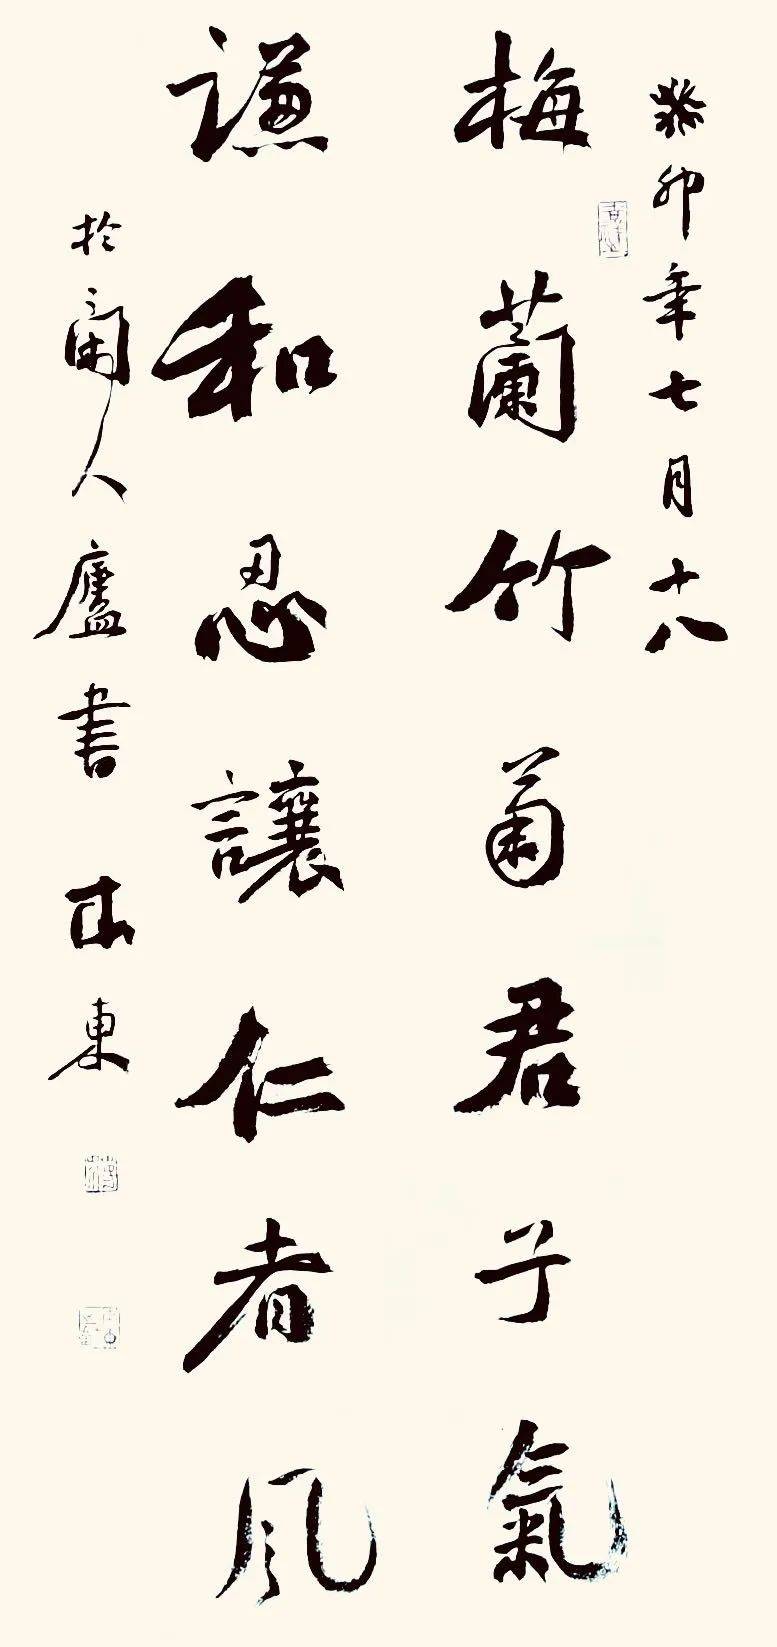 癸卯年七月十八
梅蘭竹菊君子氣
謙和忍讓仁者風
於闲人廬書 東